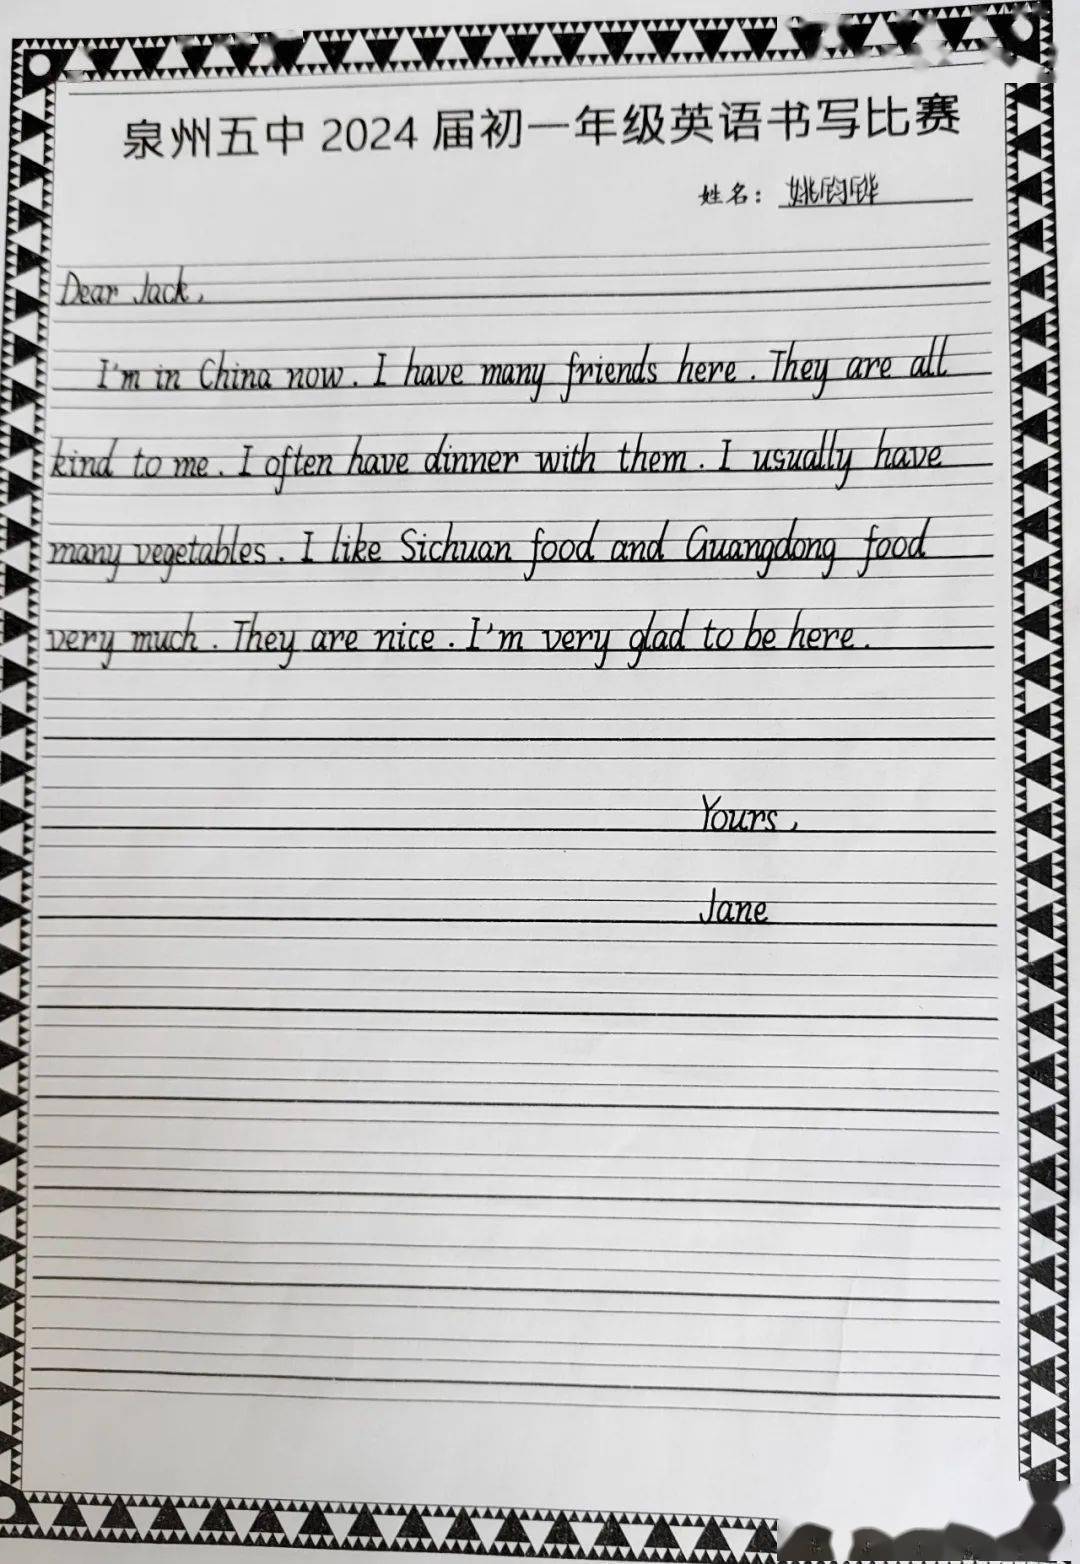 泉州五中 2024 届初一年级英语书写比赛
姓名：
Dear Jack,
I'm in China now. I have many friends here. They are all
kind to me. I often have dinner with them. I usually have
many vegetables. I like Sichuan food and Guangdong food
very much. They are nice. I'm very glad to be here.
Yours,
Jane